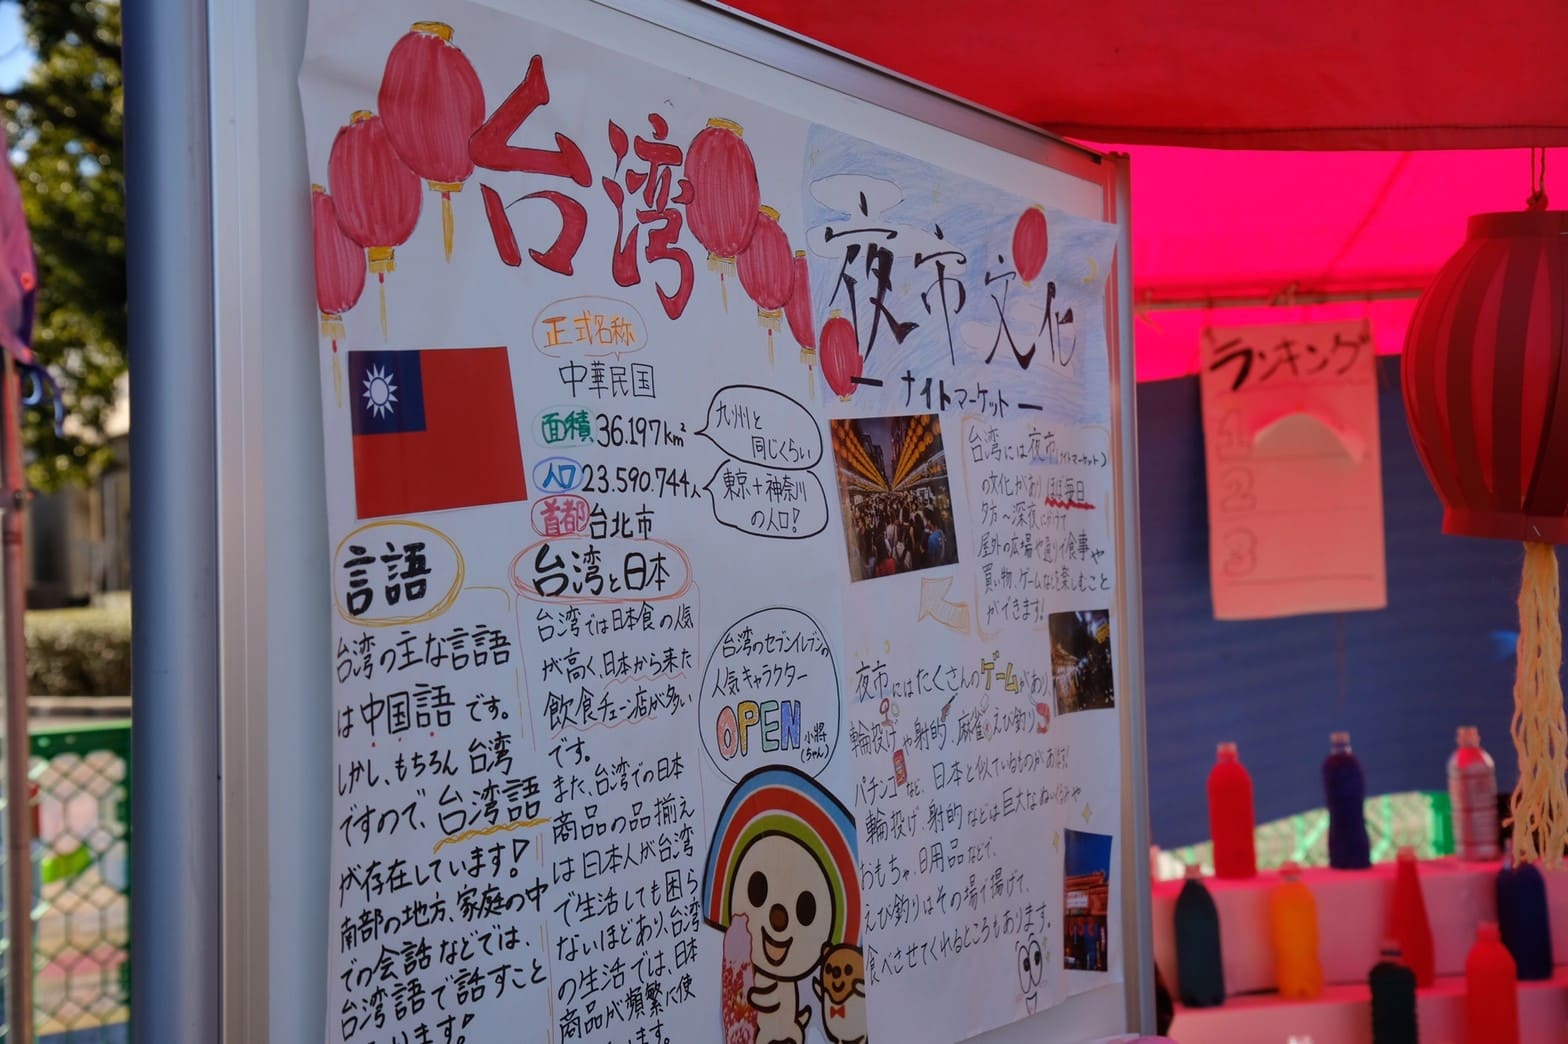 台湾
正式名称
中華民国
面積 36.197km²
九州と
同じくらい
人口 23.590.744人
東京+神奈川
の人口!
首都 台北市
言語
台湾の主な言語
は中国語です。
しかし、もちろん台湾
ですので、台湾語
が存在しています!
南部の地方、家庭の中
での会話などでは、
台湾語で話すこと
います!
台湾と日本
台湾では日本食の人気
が高く、日本から来た
飲食チェーン店が多い
です。
また、台湾での日本
商品の品揃え
は日本人が台湾
で生活しても困ら
ないほどあり、台湾
の生活では、日本
商品が頻繁に使
います。
台湾のセブンイレブンの
人気キャラクター
OPEN小将
(ちゃん)
夜市文化
ーナイトマーケットー
台湾には夜市(ナイトマーケット)
の文化があり、ほぼ毎日
夕方〜深夜にかけて
屋外の広場や道で食事や
買い物、ゲームなどを楽しむこと
ができます!
夜市にはたくさんのゲームがあり
輪投げや射的、麻雀、えび釣り
パチンコなど、日本と似ているものがあります!
輪投げ、射的などは巨大なぬいぐるみや
おもちゃ、日用品などで、
えび釣りはその場で揚げて、
食べさせてくれるところもあります。
ランキング
1
2
3